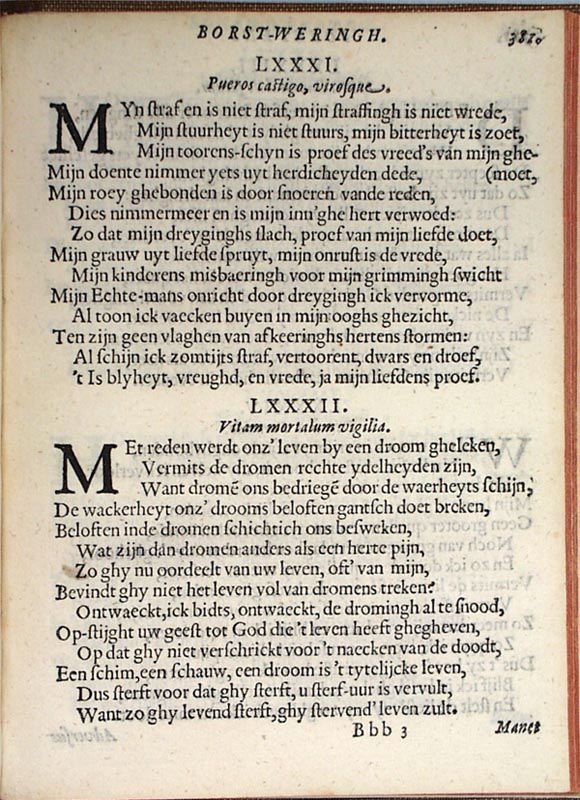 BORST-WERINGH. 381.
LXXXI.
Pueros castigo, virosque.
MYn straf en is niet straf, mijn straffingh is niet wrede,
Mijn stuurheyt is niet stuurs, mijn bitterheyt is zoet,
Mijn toorens-schyn is proef des vreed's van mijn ghe-
Mijn doente nimmer yets uyt herdicheyden dede, (moet,
Mijn roey ghebonden is door snoeren vande reden,
Dies nimmermeer en is mijn inn'ghe hert verwoed:
Zo dat mijn dreyginghs slach, proef van mijn liefde doet,
Mijn grauw uyt liefde spruyt, mijn onrust is de vrede,
Mijn kinderens misbaeringh voor mijn grimmingh swicht
Mijn Echte-mans onricht door dreygingh ick vervorme,
Al toon ick vaecken buyen in mijn ooghs ghezicht,
Ten zijn geen vlaghen van afkeeringhs hertens stormen:
Al schijn ick zomtijts straf, vertoorent, dwars en droef,
't Is blyheyt, vreughd, en vrede, ja mijn liefdens proef.
LXXXII.
Vitam mortalum vigilia.
MEt reden werdt onz' leven by een droom gheleken,
Vermits de dromen rechte ydelheyden zijn,
Want dromē ons bedriegē door de waerheyts schijn,
De wackerheyt onz' drooms beloften gantsch doet breken,
Beloften inde dromen schichtich ons besweken,
Wat zijn dan dromen anders als een herte pijn,
Zo ghy nu oordeelt van uw leven, oft' van mijn,
Bevindt ghy niet het leven vol van dromens treken?
Ontwaeckt, ick bidts, ontwaeckt, de dromingh al te snood,
Op-stijght uw geest tot God die 't leven heeft ghegheven,
Op dat ghy niet verschrickt voor 't naecken van de doodt,
Een schim, een schauw, een droom is 't tytelijcke leven,
Dus sterft voor dat ghy sterft, u sterf-uur is vervult,
Want zo ghy levend sterft, ghy stervend' leven zult.
Bbb 3 Manet